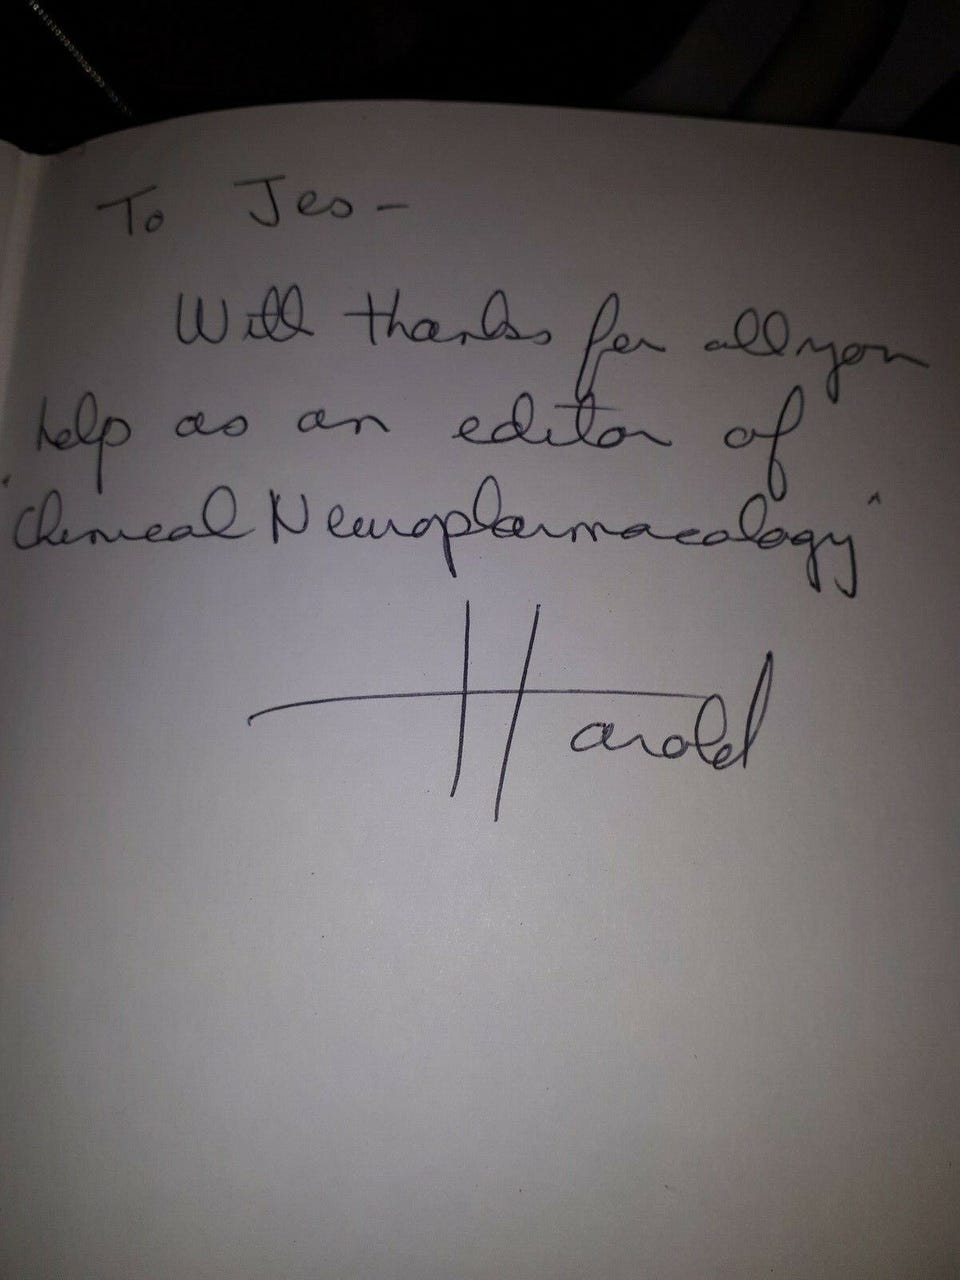 To Jes -
With thanks for all your
help as an editor of
"Clinical Neuropharmacology"
Harold